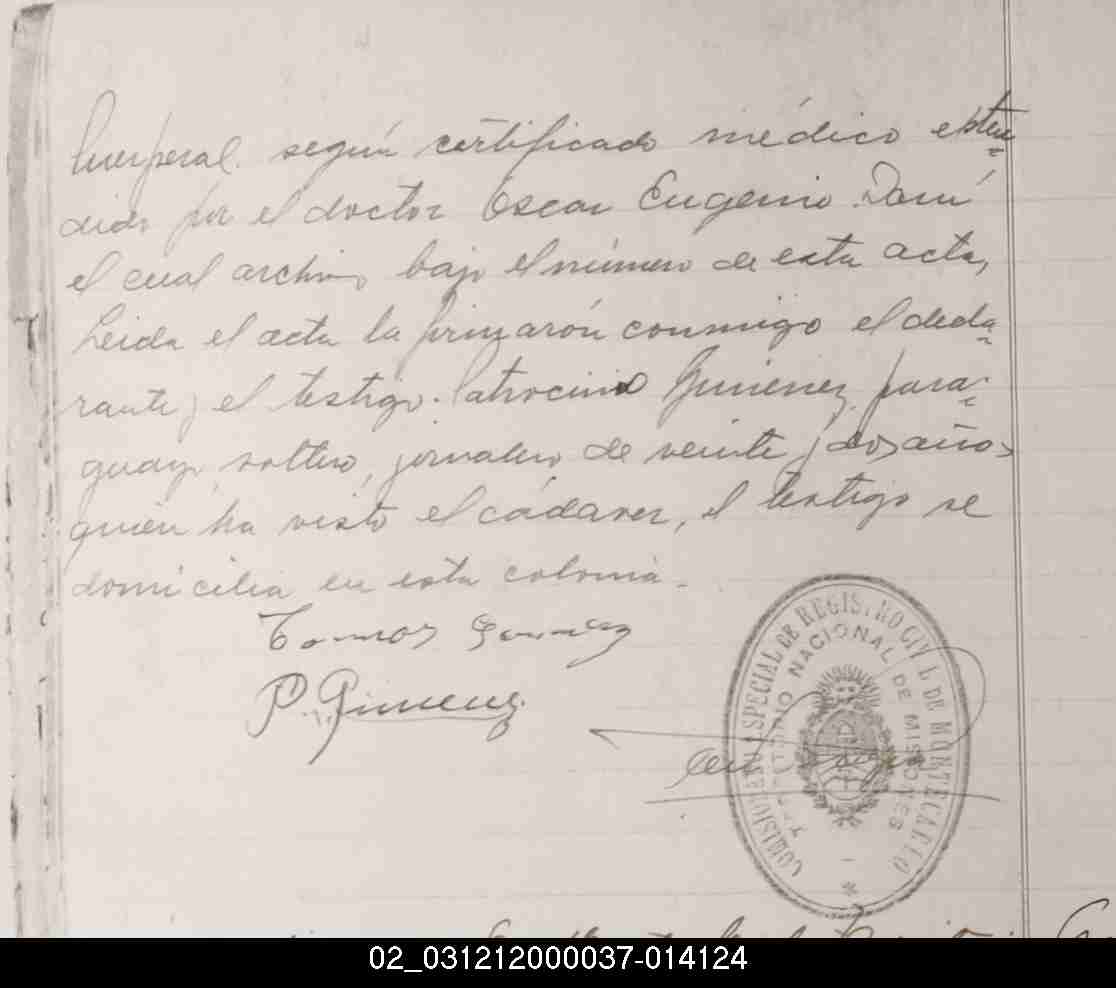 puerperal. según certificado médico exten
dido por el doctor Oscar Eugenio Darú
el cual archivo bajo el número de esta acta,
Leida el acta la firmarón conmigo el decla
rante y el testigo. Patrocinio Gimenez, para
guayo, soltero, jornalero de veinte y dos años
quien ha visto el cadaver, el testigo se
domicilia en esta colonia.
P. Gimenez
COMISIONADO ESPECIAL DE REGISTRO CIVIL DE MONTECARLO
TERRITORIO NACIONAL DE MISIONES
02_031212000037-014124